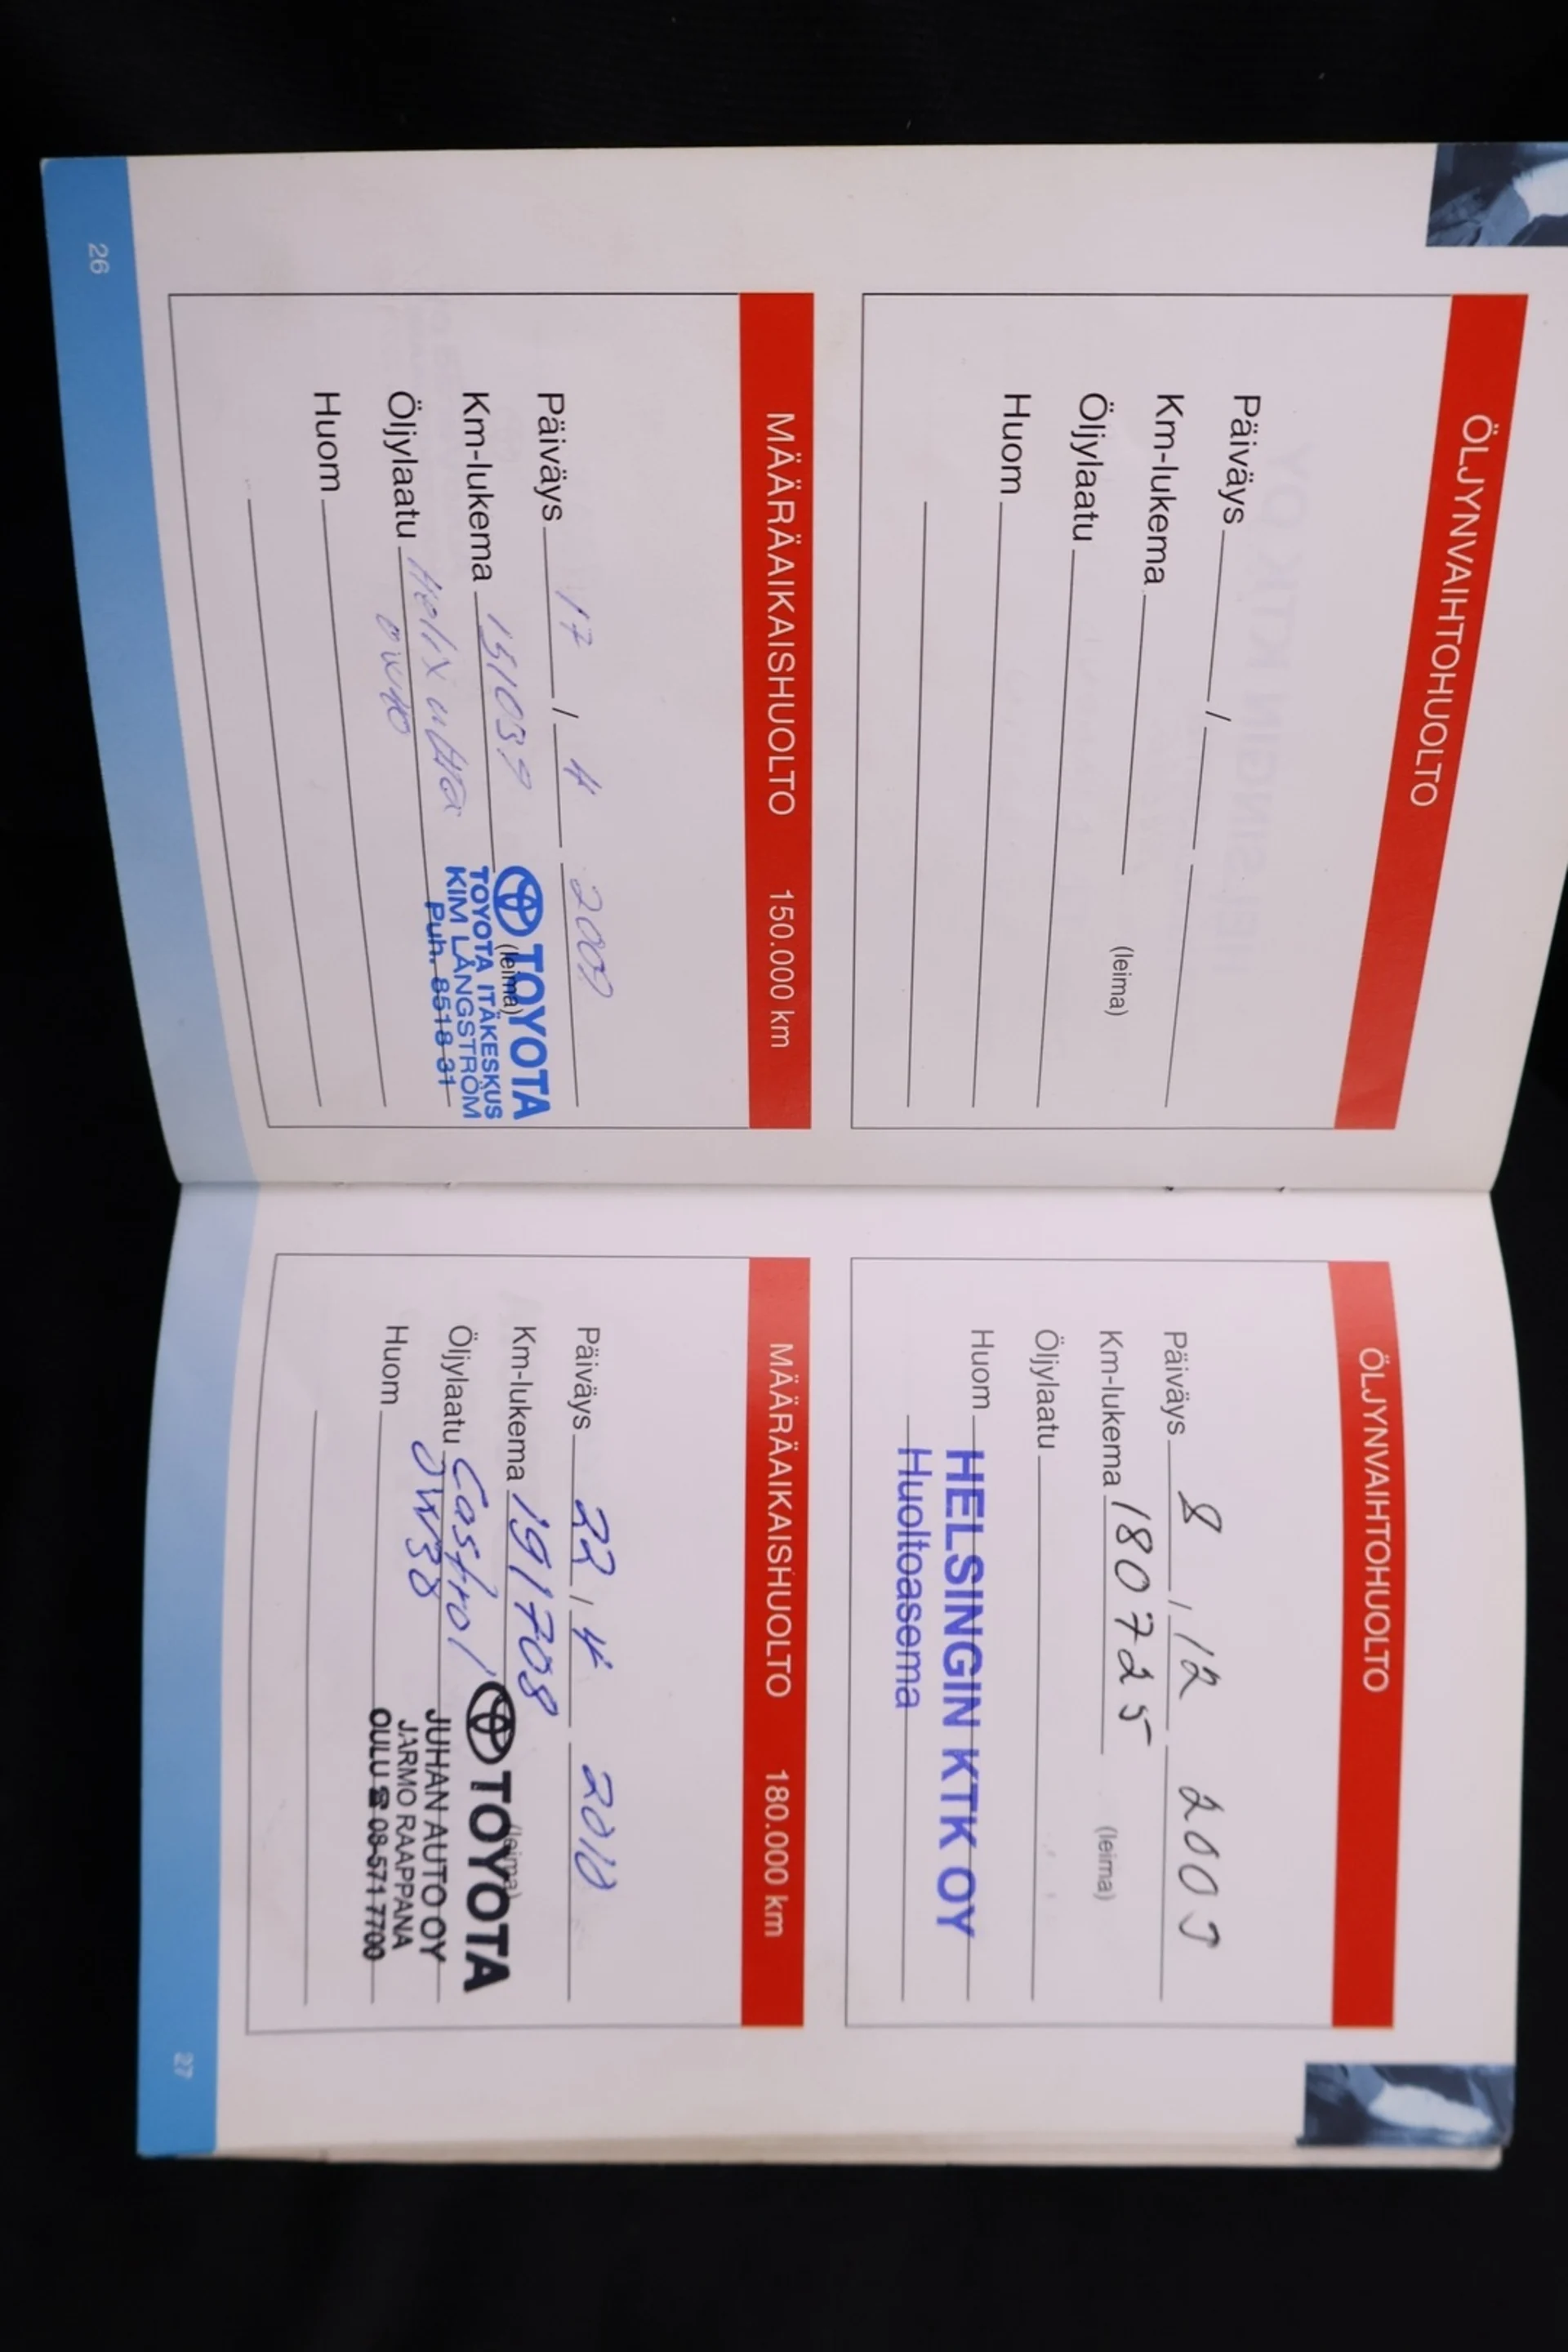 ÖLJYNVAIHTOHUOLTO
Päiväys / 
Km-lukema
(leima)
Öljylaatu
Huom
MÄÄRÄAIKAISHUOLTO 150.000 km
Päiväys 17 / 4 2009
Km-lukema 151039
TOYOTA
(leima)
Öljylaatu Helix ultra
TOYOTA ITÄKESKUS
KIM LÅNGSTRÖM
Puh. 8518 31
0W40
Huom
26
ÖLJYNVAIHTOHUOLTO
Päiväys 8 / 12 2009
Km-lukema 180725
(leima)
Öljylaatu
Huom
HELSINGIN KTK OY
Huoltoasema
MÄÄRÄAIKAISHUOLTO 180.000 km
Päiväys 22 / 4 2010
Km-lukema 191708
(leima)
TOYOTA
Öljylaatu Castrol
0W30
JUHAN AUTO OY
JARMO RAAPPANA
OULU ☎ 08-571 7700
Huom
27